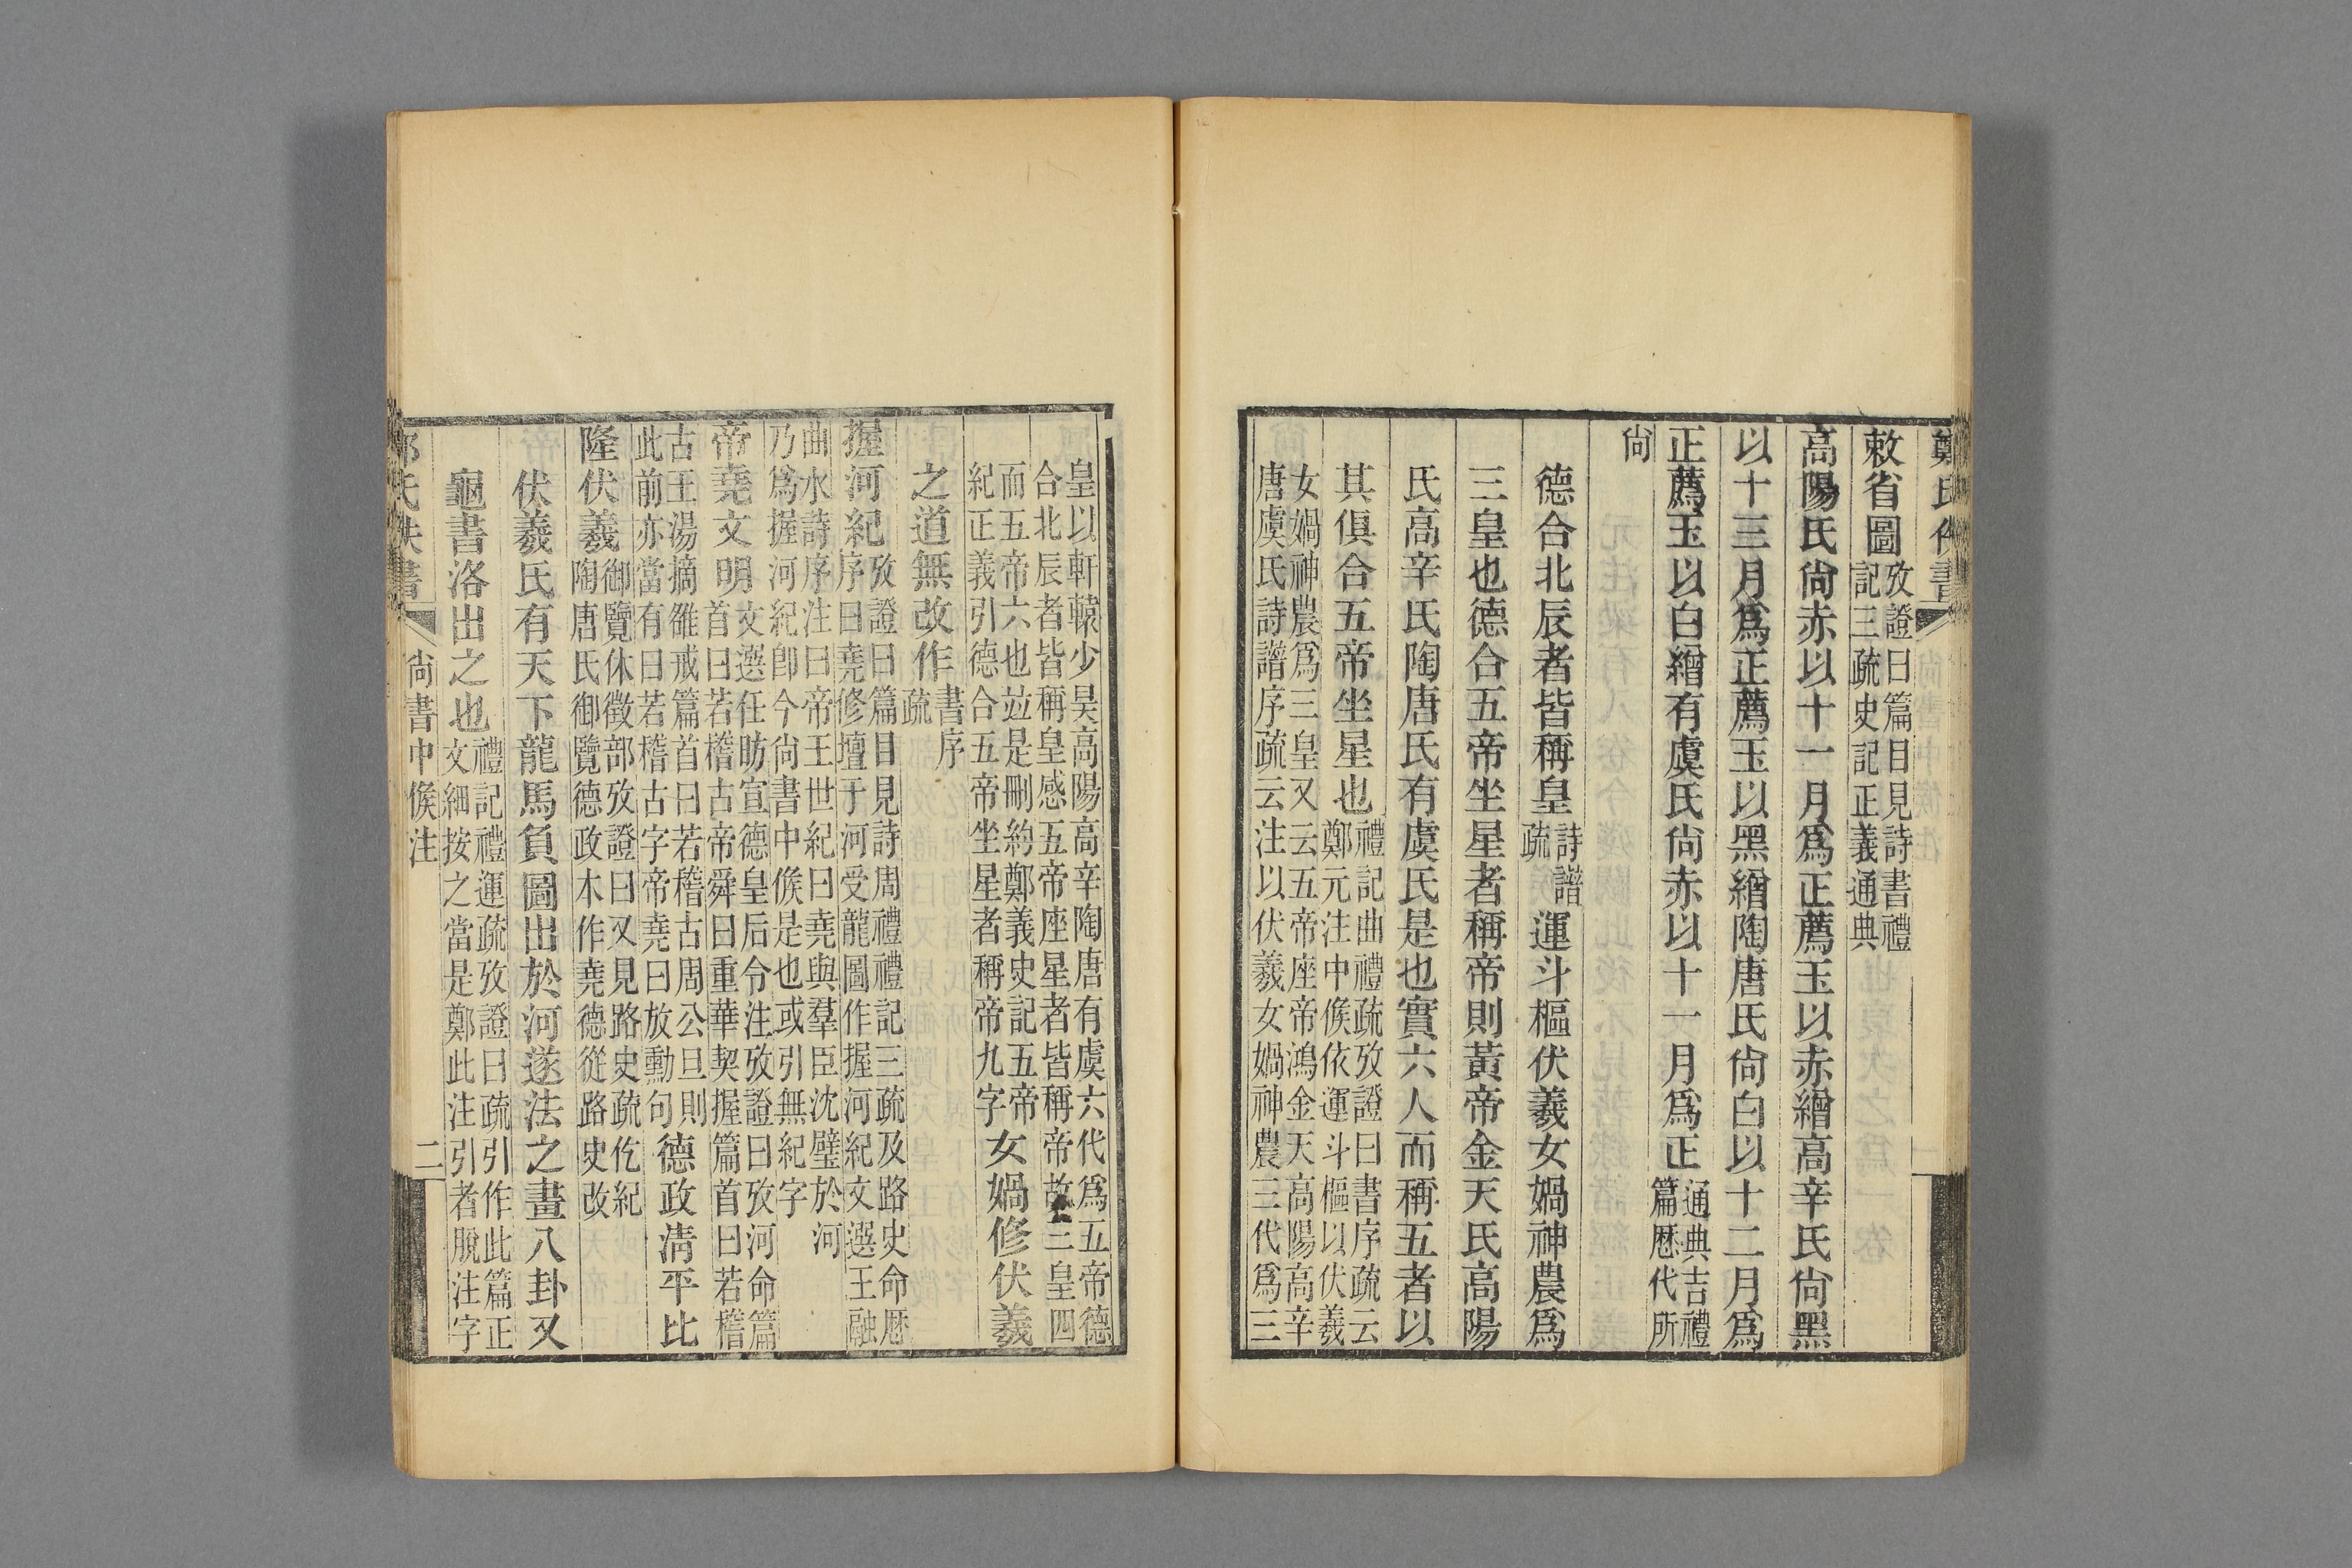 鄭氏佚書
敕省圖攷證曰篇目見詩書禮
記三疏史記正義通典
高陽氏尙赤以十一月爲正薦玉以赤繒高辛氏尙黑
以十三月爲正薦玉以黑繒陶唐氏尙白以十二月爲
正薦玉以白繒有虞氏尙赤以十一月爲正通典吉禮
篇歷代所
尙
德合北辰者皆稱皇詩譜
疏運斗樞伏羲女媧神農爲
三皇也德合五帝坐星者稱帝則黃帝金天氏高陽
氏高辛氏陶唐氏有虞氏是也實六人而稱五者以
其俱合五帝坐星也禮記曲禮疏攷證曰書序疏云
鄭元注中候依運斗樞以伏羲
女媧神農爲三皇又云五帝座帝鴻金天高陽高辛
唐虞氏詩譜序疏云注以伏羲女媧神農三代爲三
皇以軒轅少昊高陽高辛陶唐有虞六代爲五帝德
合北辰者皆稱皇感五帝座星者皆稱帝故三皇四
而五帝六也竝是刪約鄭義史記五帝
紀正義引德合五帝坐星者稱帝九字女媧修伏羲
之道無改作書序
疏
握河紀攷證曰篇目見詩周禮禮記三疏及路史命歷
序曰堯修壇于河受龍圖作握河紀文選王融
曲水詩序注曰帝王世紀曰堯與羣臣沈璧於河
乃爲握河紀卽今尙書中候是也或引無紀字
帝堯文明文選任昉宣德皇后令注攷證曰攷河命篇
首曰若稽古帝舜曰重華契握篇首曰若稽
古王湯摘雒戒篇首曰若稽古周公旦則
此前亦當有曰若稽古字帝堯曰放勳句德政淸平比
隆伏羲御覽休徵部攷證曰又見路史疏仡紀
陶唐氏御覽德政本作堯德從路史改
伏羲氏有天下龍馬負圖出於河遂法之畫八卦又
龜書洛出之也禮記禮運疏攷證曰疏引作此篇正
文細按之當是鄭此注引者脫注字
鄭氏佚書
尙書中候注
二